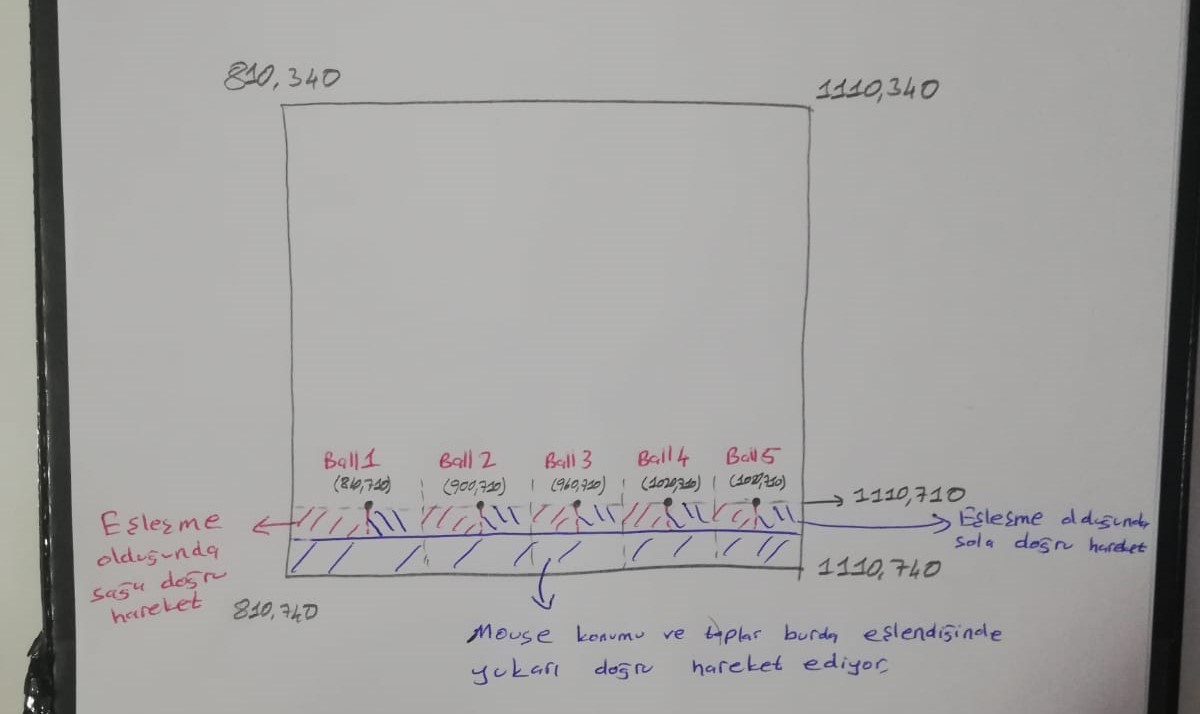 810,340
1110,340
Ball 1 Ball 2 Ball 3 Ball 4 Ball 5
(840,710) (900,710) (960,710) (1020,710) (1080,710)
1110,710
Eşleşme
olduğunda
sağa doğru
hareket
Eşleşme olduğunda
sola doğru hareket
1110,740
810,740
Mouse konumu ve toplar burda eşlendiğinde
yukarı doğru hareket ediyor.